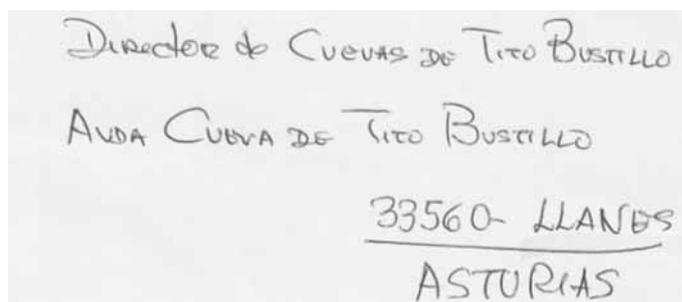 Director de CUEVAS DE TITO BUSTILLO
AVDA CUEVA DE TITO BUSTILLO
33560- LLANES
ASTURIAS